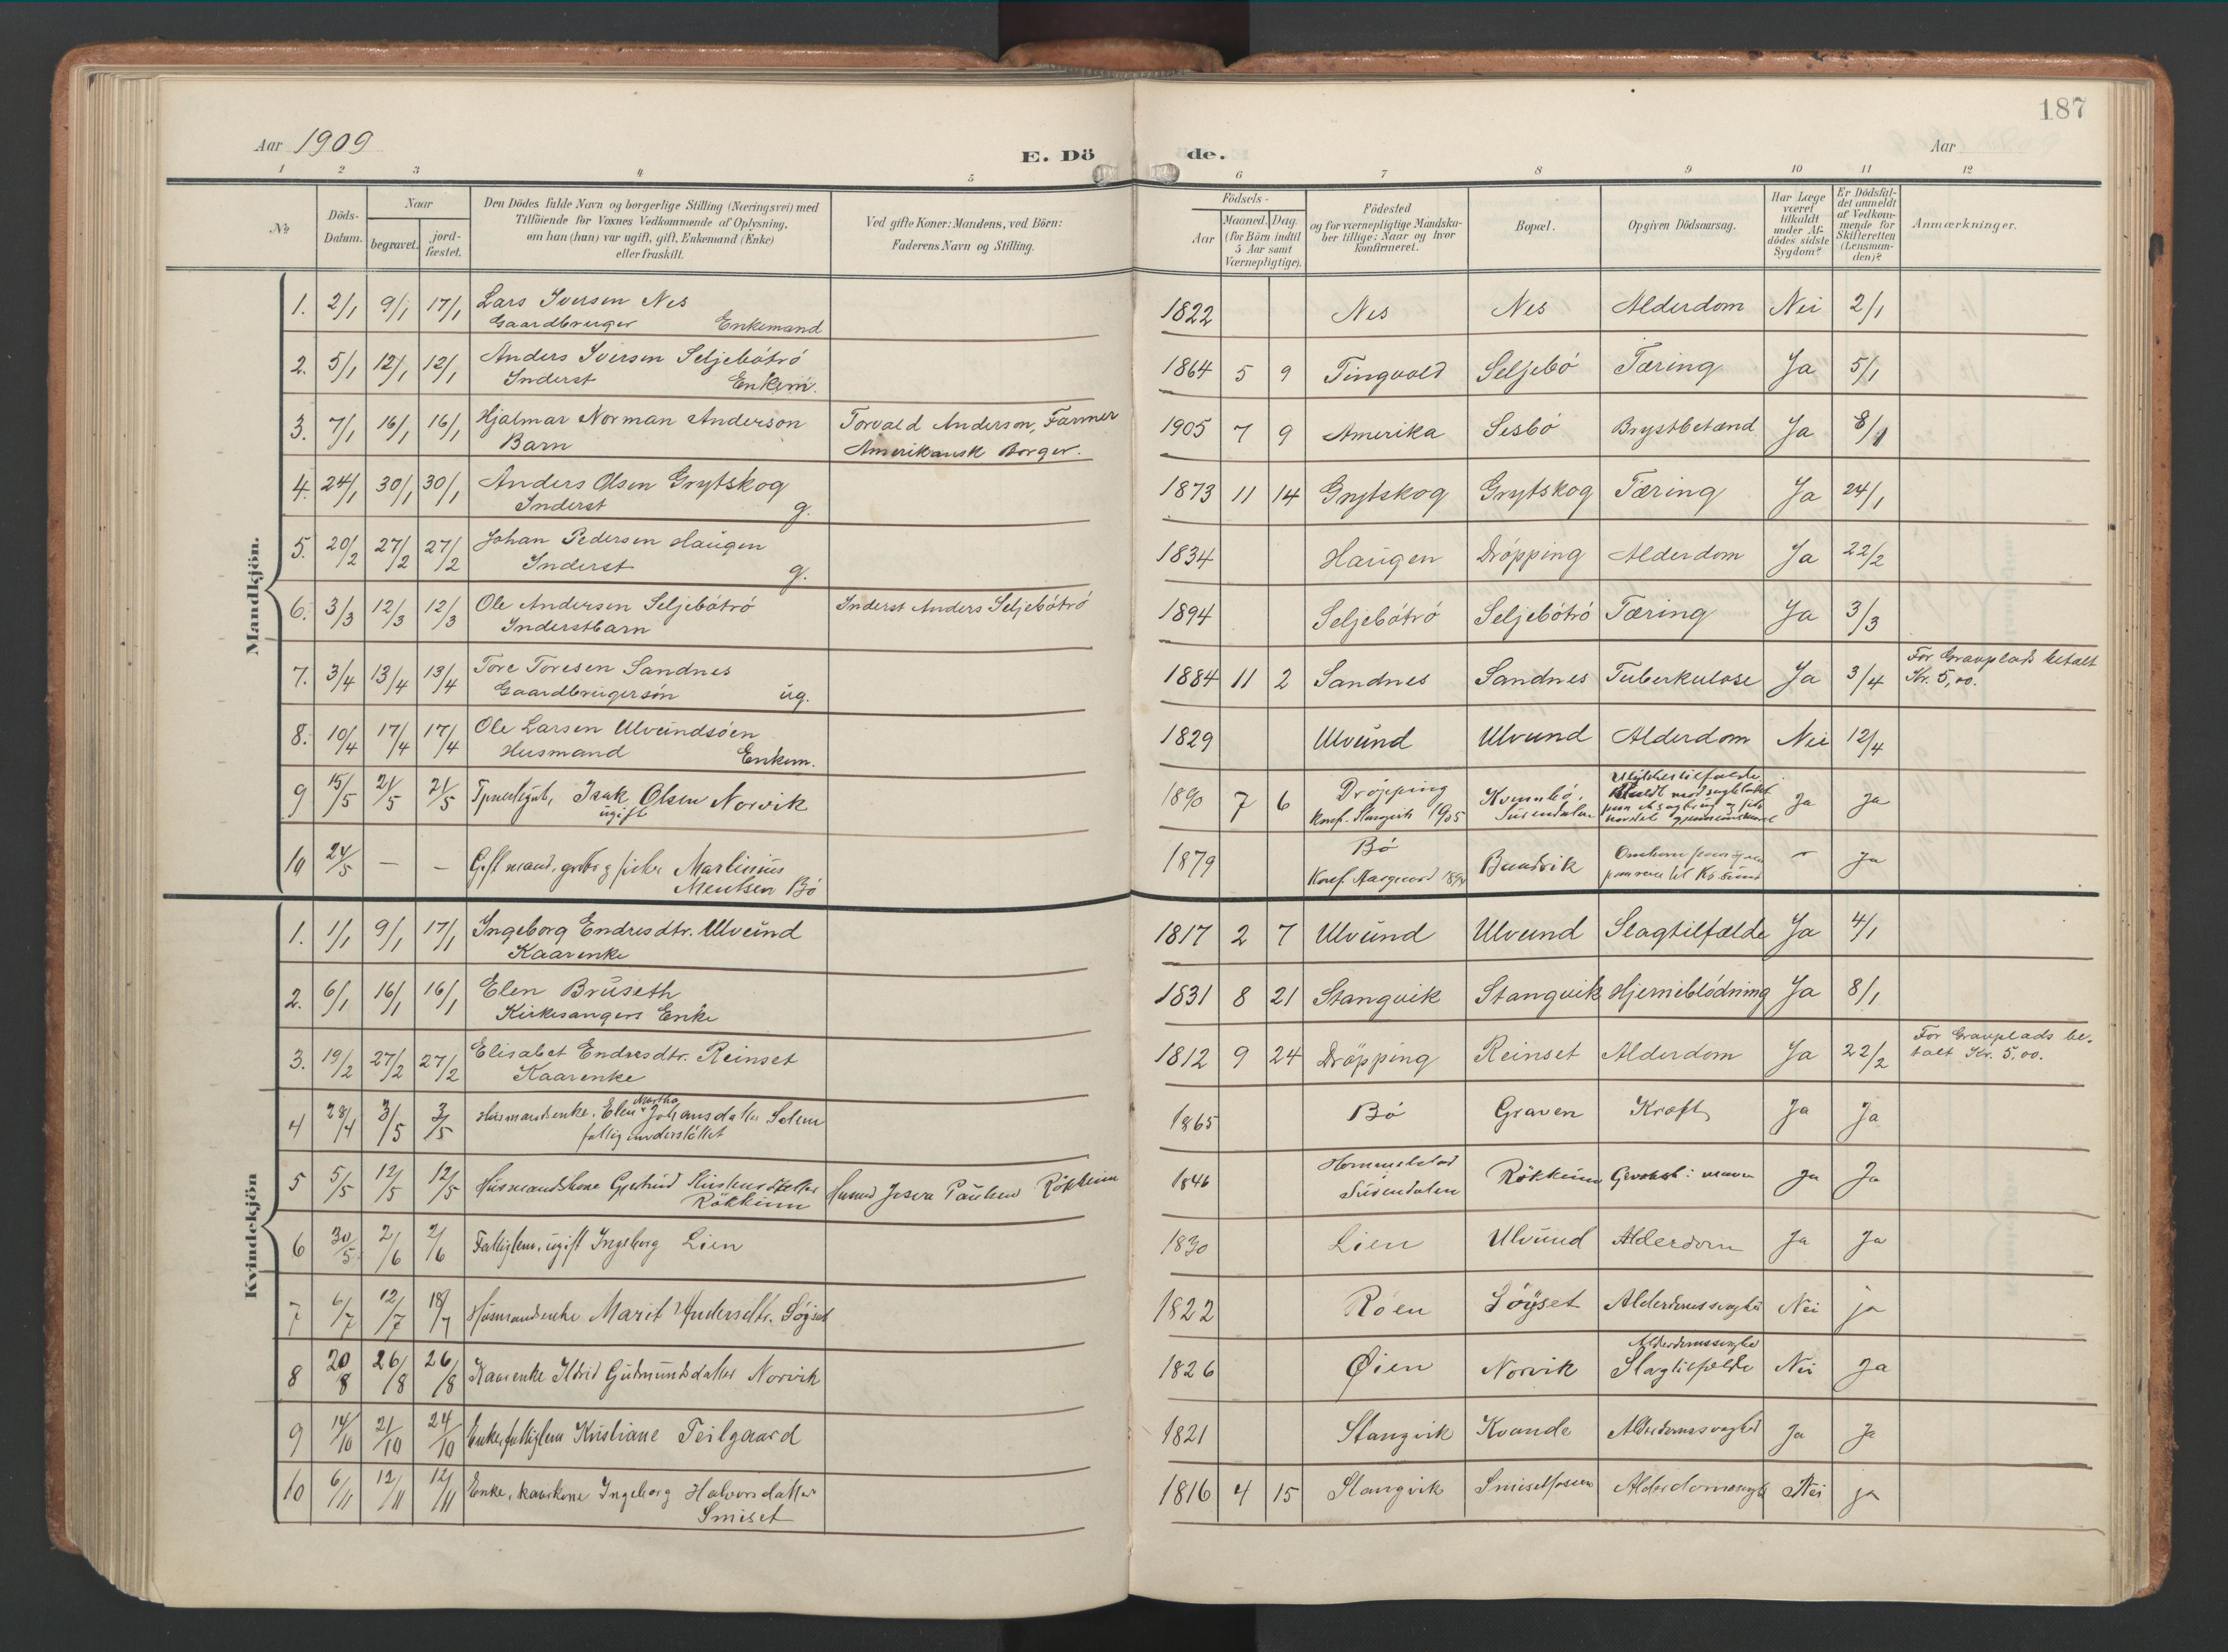 187
Aar 1909
E. Dö de.
Aar
1 2 3 4 5 6 7 8 9 10 11 12
No
Döds-Datum.
Naar
begravet.
jord-fæstet.
Den Dödes fulde Navn og borgerlige Stilling (Næringsvei) med
Tilföiende for Voxnes Vedkommende af Oplysning,
om han (hun) var ugift, gift, Enkemand (Enke)
eller fraskilt.
Ved gifte Koner: Mandens, ved Börn:
Faderens Navn og Stilling.
Födsels-
Aar
Maaned. Dag.
(for Börn indtil
5 Aar samt
Værnepligtige).
Födested
og for værnepligtige Mandska-
ber tillige: Naar og hvor
konfirmeret.
Bopæl.
Opgiven Dödsaarsag.
Har Læge
været
tilkaldt
under Af-
dödes sidste
Sygdom?
Er Dödsfal-
det anmeldt
af Vedkom-
mende for
Skifteretten
(Lensman-
den)?
Anmærkninger.
Mandkjön.
1. 2/1 9/1 17/1 Lars Iversen Nes 1822 Nes Nes Alderdom Nei 2/1
Gaardbruger Enkemand
2. 5/1 12/1 12/1 Anders Iversen Seljebötrö 1864 5 9 Tingvold Seljebö Tæring Ja 5/1
Inderst Enkem.
3. 7/1 16/1 16/1 Hjalmar Norman Anderson Torvald Anderson, Farmer 1905 7 9 Amerika Sesbö Brystbetænd. Ja 8/1
Barn Amerikansk Borger.
4. 24/1 30/1 30/1 Anders Olsen Grytskog 1873 11 14 Grytskog Grytskog Tæring Ja 24/1
Inderst g.
5. 20/2 27/2 27/2 Johan Pedersen Haugen 1834 Haugen Dröpping Alderdom Ja 22/2
Inderst g.
6. 3/3 12/3 12/3 Ole Andersen Seljebötrö Inderst Anders Seljebötrö 1894 Seljebötrö Seljebötrö Tæring Ja 3/3
Inderstbarn
7. 3/4 13/4 13/4 Tore Toresen Sandnes 1884 11 2 Sandnes Sandnes Tuberkulose Ja 3/4 For Gravplads betalt
Gaardbrugersön ug. Kr. 5,00.
8. 10/4 17/4 17/4 Ole Larsen Ulvundsöen 1829 Ulvund Ulvund Alderdom Nei 12/4
Husmand Enkem.
9 15/5 21/5 21/5 Tjenestgut, Isak Olsen Norvik 1890 7 6 Dröpping Ja Ja
ugift Konf. Stangvik 1905 Surendalen
10 24/5 — — Gift mand, Martinius 1879 Bö Baadvik — Ja
Bö Konf.
Kvindekjön
1. 1/1 9/1 17/1 Ingeborg Endresdtr. Ulvund 1817 2 7 Ulvund Ulvund Slagtilfælde Ja 4/1
Kaarenke
2. 6/1 16/1 16/1 Elen Bruseth 1831 8 21 Stangvik Stangvik Hjerneblödning Ja 8/1
Kirkesangers Enke
3. 19/2 27/2 27/2 Elisabet Endresdtr. Reinset 1812 9 24 Dröpping Reinset Alderdom Ja 22/2 For Gravplads be-
Kaarenke talt Kr. 5,00.
4 28/4 3/5 3/5 Husmandsenke. Elen Martha Johansdatter Solem 1865 Bö Graven Kræft Ja Ja
fattigunderstöttet
5 5/5 12/5 12/5 Husmandskone Gjertrud Husmd Josva Paulsen Rökkum 1846 Hommelstad Rökkum Ja Ja
Rökkum Surendalen
6 30/5 2/6 2/6 Fattiglem, ugift Ingeborg Lien 1830 Lien Ulvund Alderdom Ja Ja
7 6/7 12/7 18/7 Husmandsenke Marit Andersdtr. Söyset 1822 Röen Söyset Alderdomssvaghed Nei ja
8 20/8 26/8 26/8 Kaarenke Ildrid Gudmundsdatter Norvik 1826 Øien Norvik Alderdomssvaghed Slagtilfælde Nei Ja
9 14/10 21/10 24/10 Enke, fattiglem Kristiane Teilgaard 1821 Stangvik Kvande Alderdomssvaghed Ja Ja
10 6/11 12/11 12/11 Enke, kaarkone Ingeborg Halvorsdatter 1816 4 15 Stangvik Alderdomssvagh Nei ja
Smiset